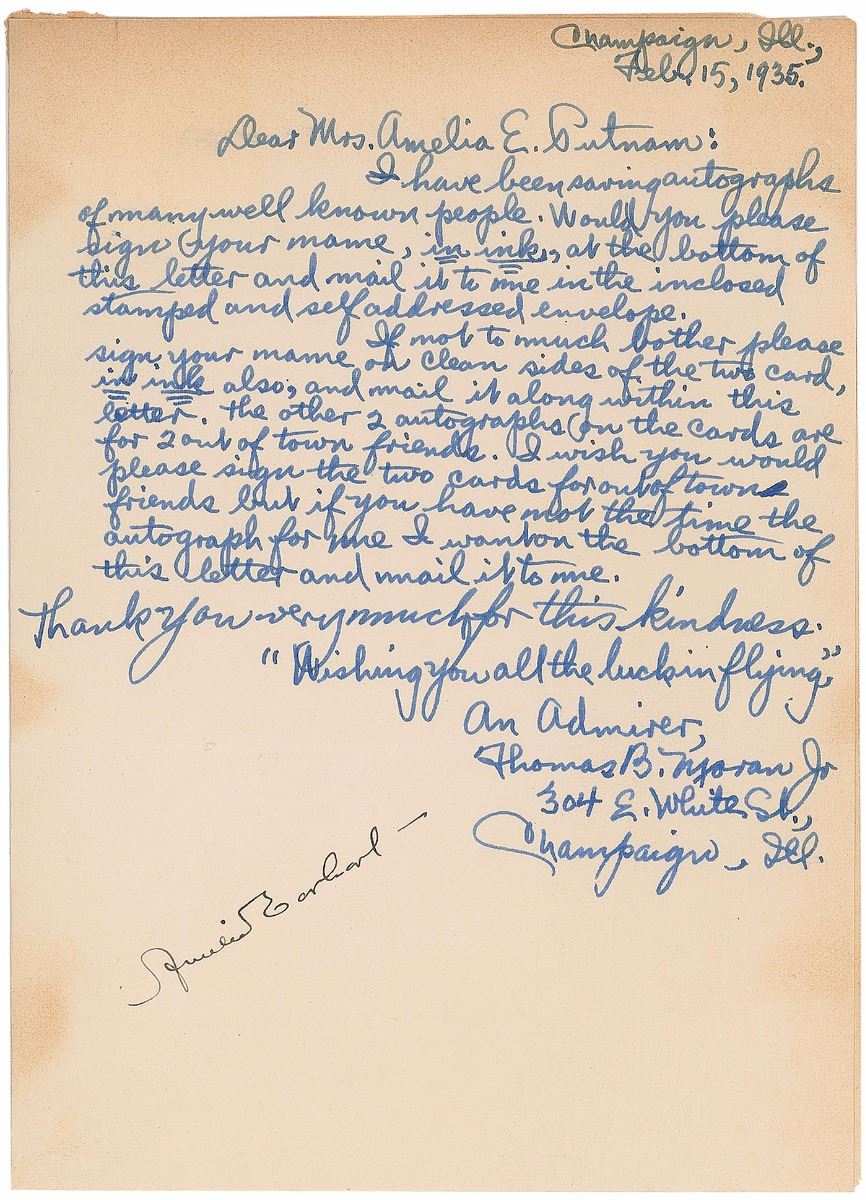 Champaign, Ill.,
Feb. 15, 1935.
Dear Mrs. Amelia E. Putnam:
I have been saving autographs
of many well known people. Would you please
sign your name, in ink, at the bottom of
this letter and mail it to me in the inclosed
stamped and self addressed envelope.
If not to much bother please
sign your name on clean sides of the two card,
in ink also, and mail it along within this
letter. The other 2 autographs on the cards are
for 2 out of town friends. I wish you would
please sign the two cards for out of town
friends but if you have not the time the
autograph for me I want on the bottom of
this letter and mail it to me.
Thank you very much for this kindness.
"Wishing you all the luck in flying,"
An Admirer,
Thomas B. Moran Jr
304 E. White St.,
Champaign, Ill.
Amelia Earhart